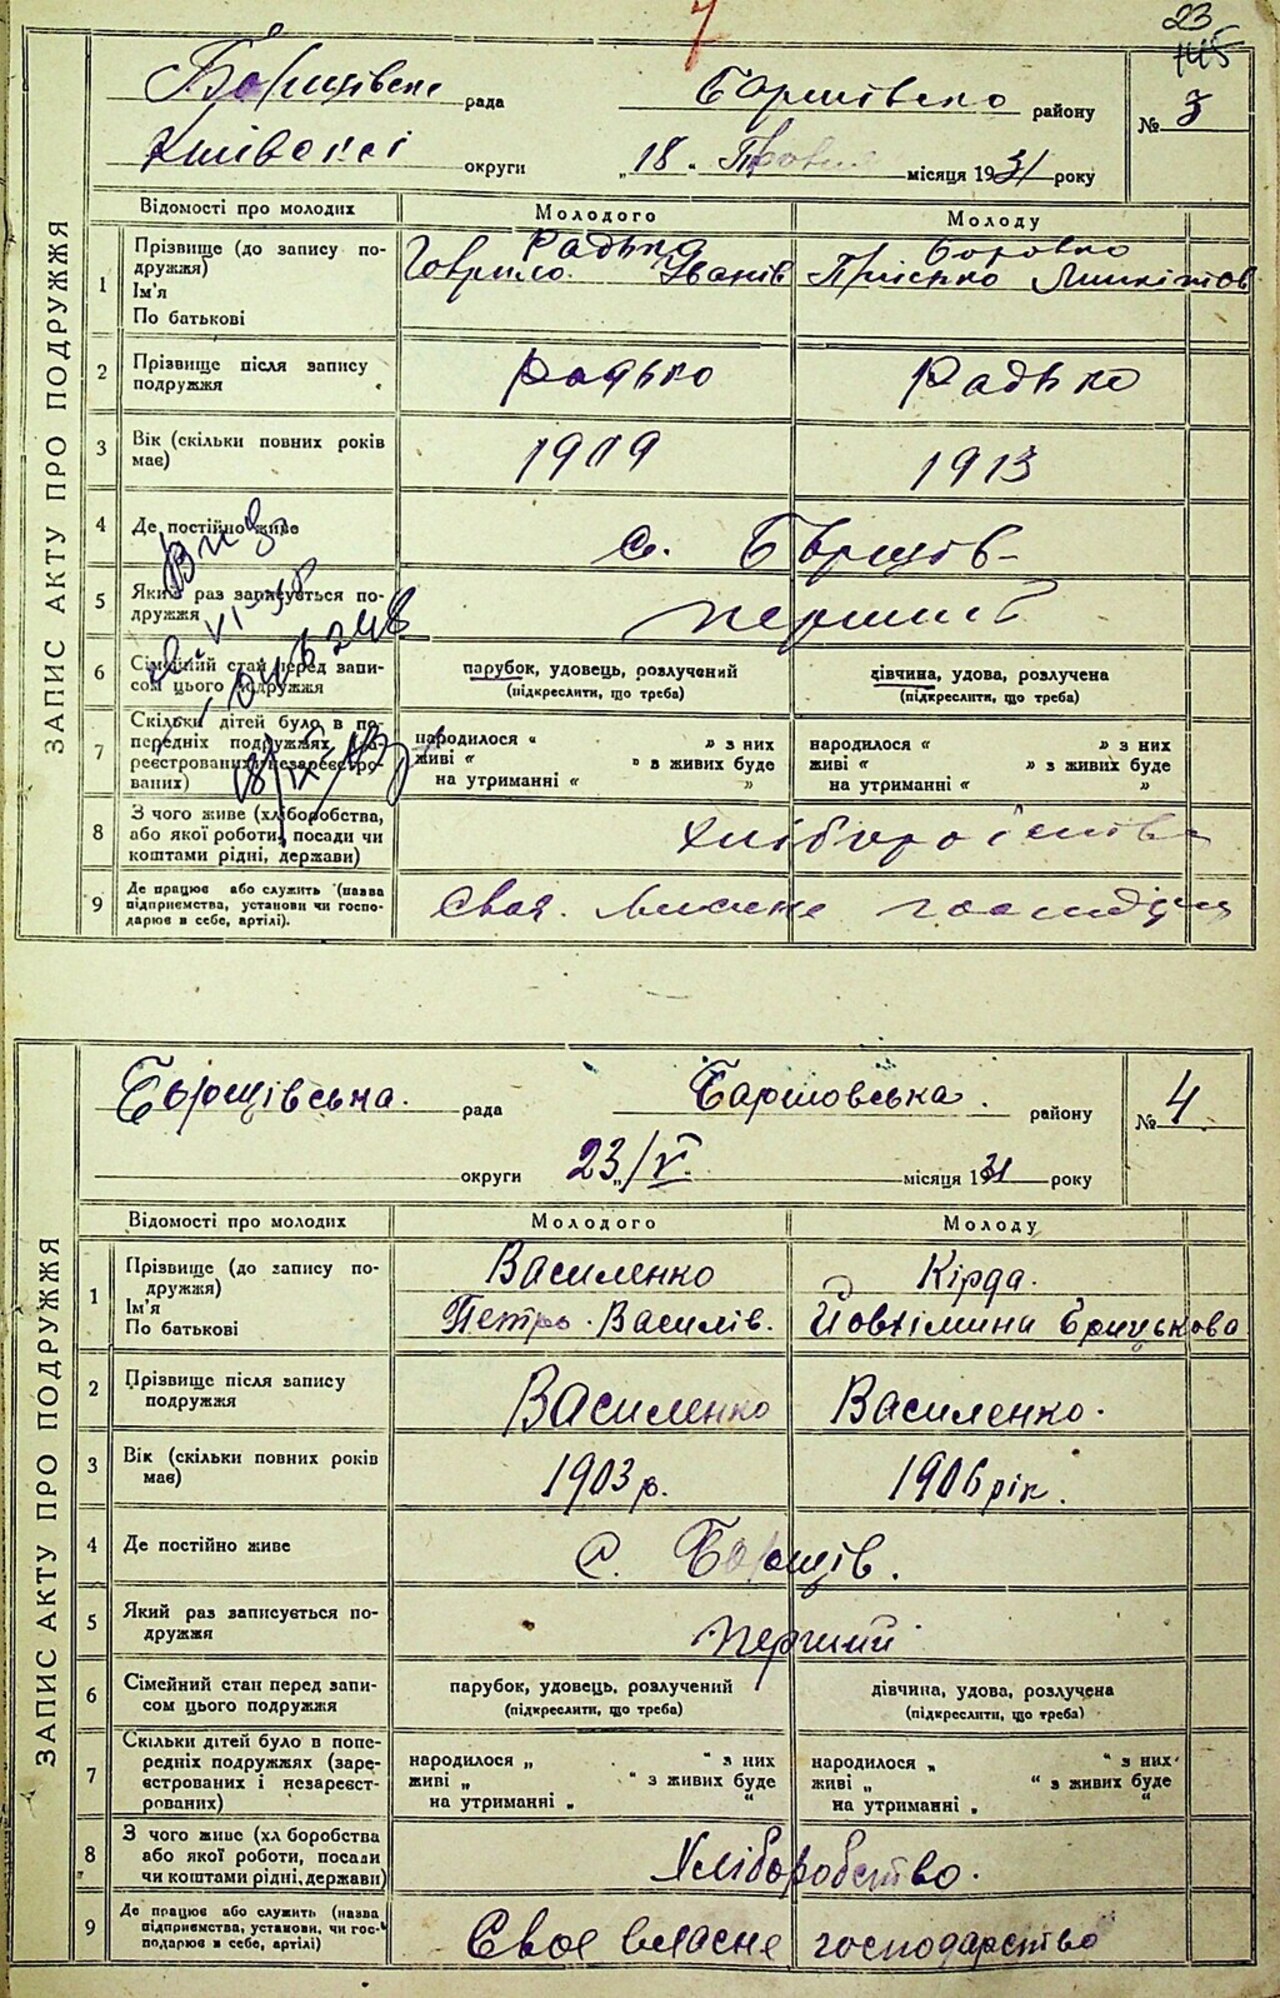 7
23
145
Борщівська рада Баришівсько району № 3
Київської округи „18„ Травня місяця 1931 року
ЗАПИС АКТУ ПРО ПОДРУЖЖЯ
Відомості про молодих Молодого Молоду
1 Прізвище (до запису по-
дружжя)
Ім'я
По батькові
Радько Боровко
Гаврило Іванів Прісько
2 Прізвище після запису
подружжя
Радько Радько
3 Вік (скільки повних років
має)
1909 1913
4 Де постійно живе с. Борщів
5 Який раз записується по-
дружжя
перший
6 Сімейний стан перед запи-
сом цього подружжя
парубок, удовець, розлучений дівчина, удова, розлучена
(підкреслити, що треба) (підкреслити, що треба)
7 Скільки дітей було в по-
передніх подружжях (за-
реєстрованих і незареєстро-
ваних)
народилося “ „ з них народилося “ „ з них
живі “ „ з живих буде живі “ „ з живих буде
на утриманні “ „ на утриманні “ „
8 З чого живе (хліборобства,
або якої роботи, посади чи
коштами рідні, держави)
хліборобство
9 Де працює або служить (назва
підприємства, установи чи госпо-
дарює в себе, артілі).
Своя
Борщівська. рада Баришовська. району № 4
округи 23„/V. місяця 1931 року
ЗАПИС АКТУ ПРО ПОДРУЖЖЯ
Відомості про молодих Молодого Молоду
1 Прізвище (до запису по-
дружжя)
Ім'я
По батькові
Василенко Кірда.
Петро. Василів. Йовхимина Грицькова
2 Прізвище після запису
подружжя
Василенко Василенко.
3 Вік (скільки повних років
має)
1903 р. 1906 рік.
4 Де постійно живе с. Борщів.
5 Який раз записується по-
дружжя
перший
6 Сімейний стан перед запи-
сом цього подружжя
парубок, удовець, розлучений дівчина, удова, розлучена
(підкреслити, що треба) (підкреслити, що треба)
7 Скільки дітей було в попе-
редніх подружжях (заре-
єстрованих і незареєст-
рованих)
народилося „ “ з них народилося „ “ з них
живі „ “ з живих буде живі „ “ з живих буде
на утриманні „ “ на утриманні „ “
8 З чого живе (хл боробства
або якої роботи, посади
чи коштами рідні, держави)
Хліборобство.
9 Де працює або служить (назва
підприємства, установи, чи гос-
подарює в себе, артілі)
Своє власне господарство